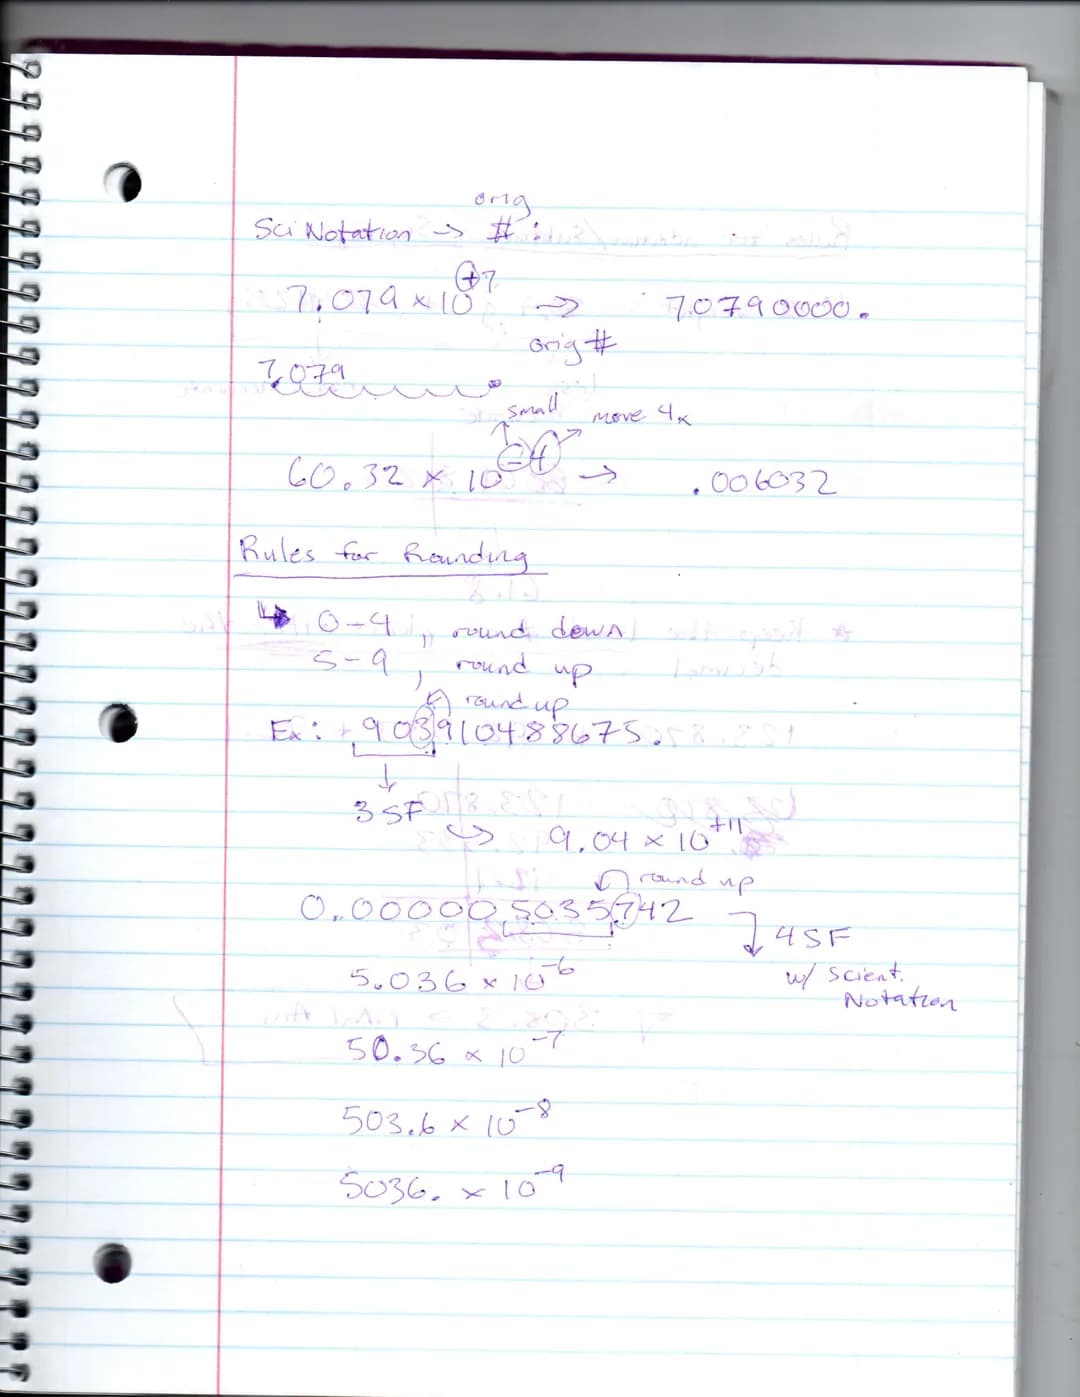 orig
Sci Notation → # :
7.079 × 10⁺⁷ → 70790000.
orig #
7.079
small move 4x
60.32 × 10⁻⁴ → .006032
Rules for Rounding
↳ 0-4, round down
5-9, round up
round up
Ex: 903910488675.
↓
3 SF
→ 9.04 × 10⁺¹¹
round up
0.000005035742
4 SF
5.036 × 10⁻⁶
w/ Scient.
Notation
50.36 × 10⁻⁷
503.6 × 10⁻⁸
5036. × 10⁻⁹